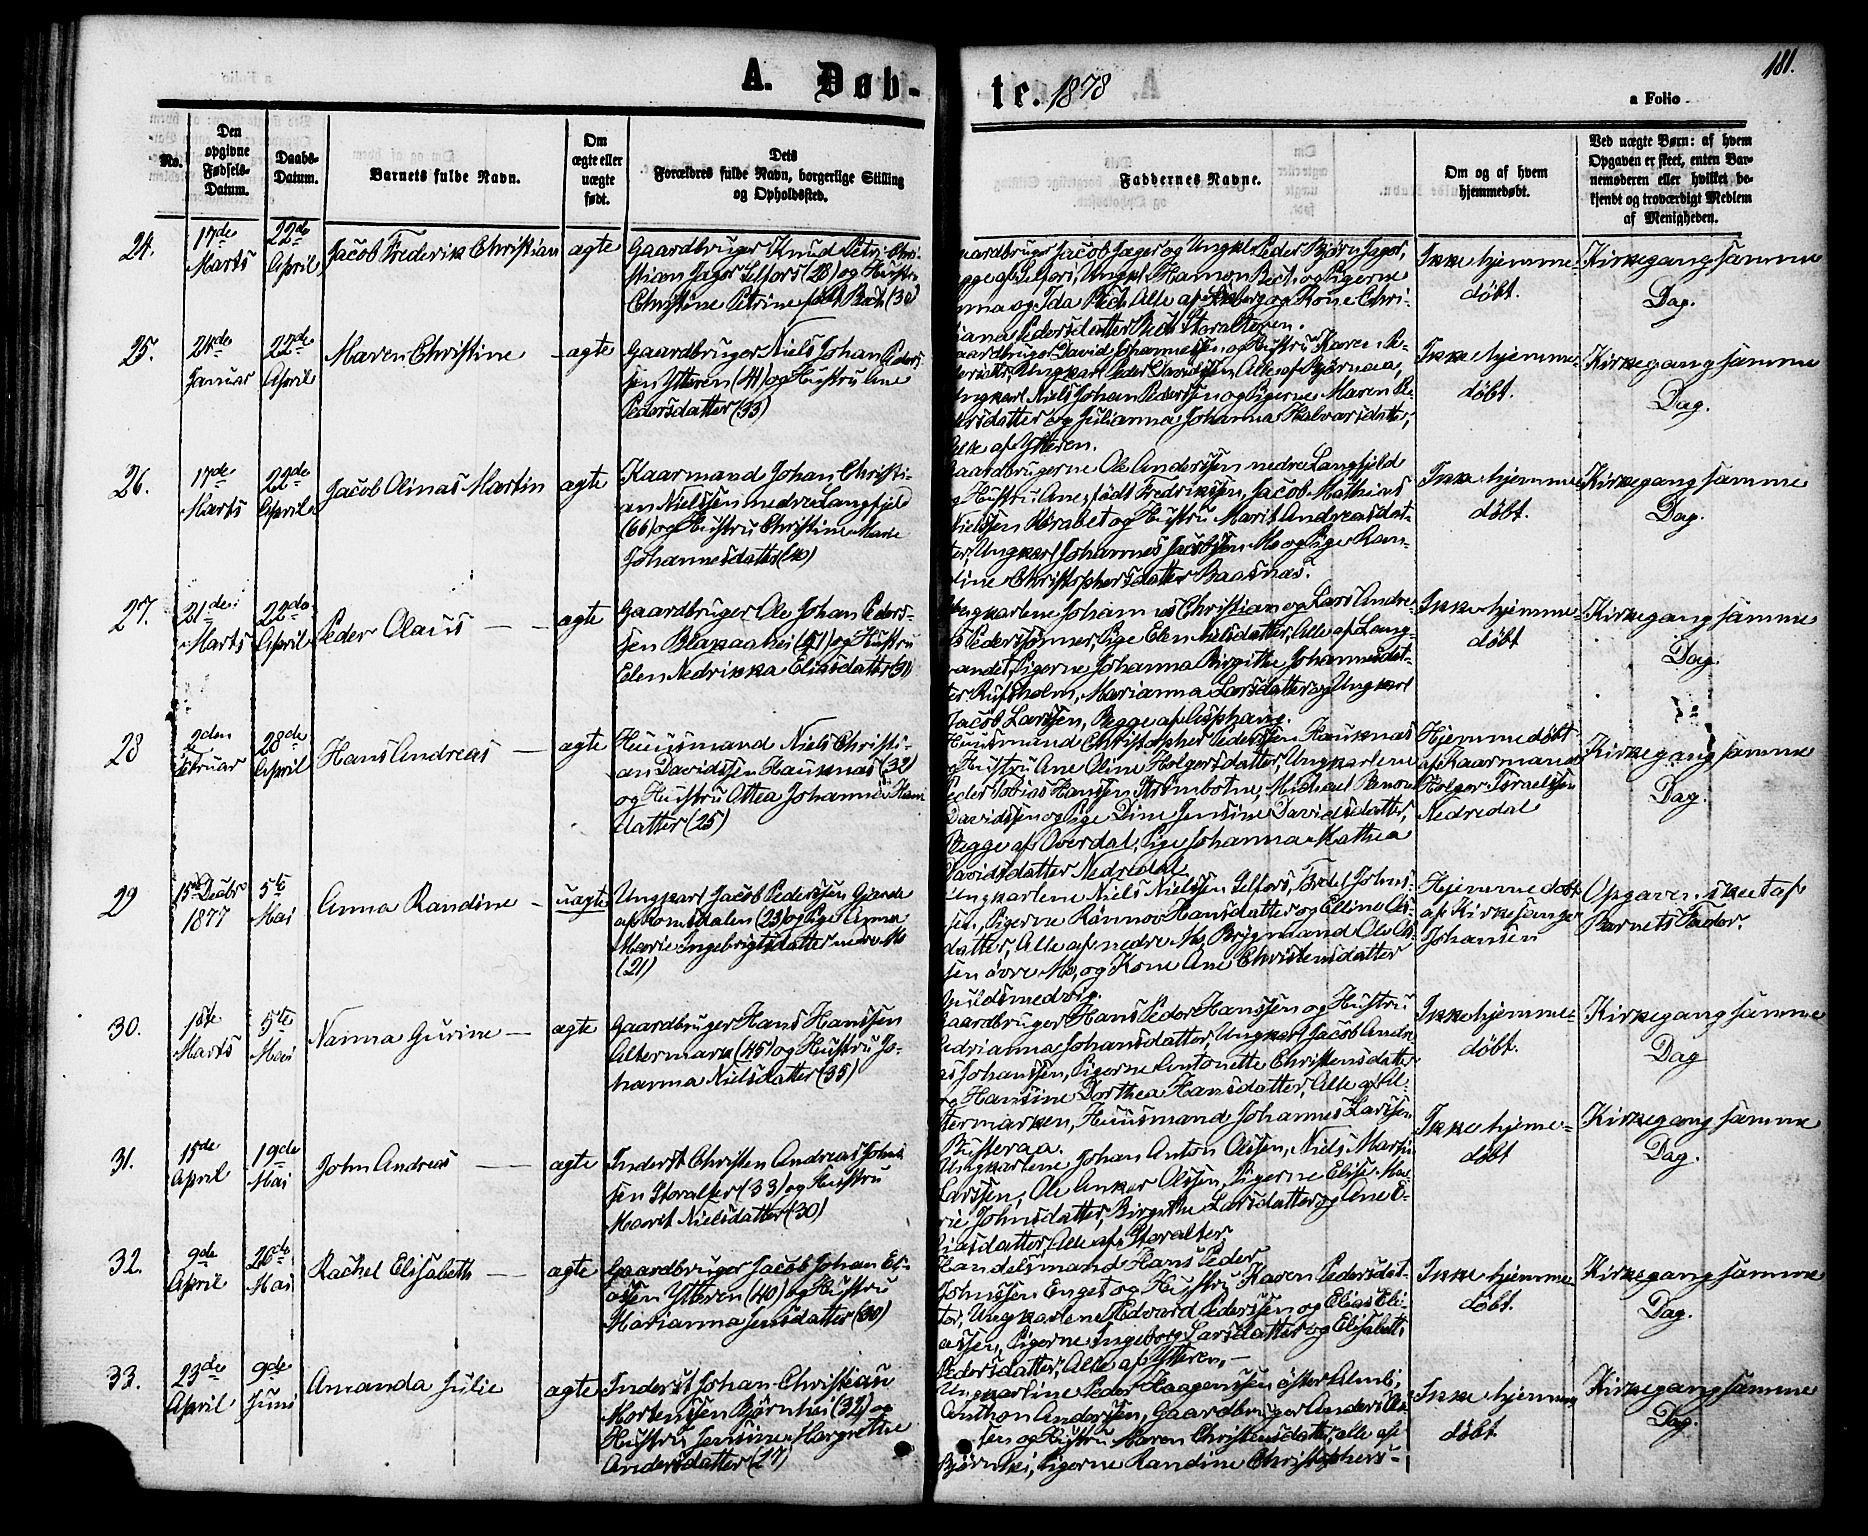 181.
A. Døb-
te. 1878
a Folio
No.
Den
opgivne
Fødsels-
Datum.
Daabs-
Datum.
Barnets fulde Navn.
Om
ægte eller
uægte
født.
Dets
Forældres fulde Navn, borgerlige Stilling
og Opholdssted.
Faddernes Navne.
Om og af hvem
hjemmedøbt.
Ved uægte Børn: af hvem
Opgaven er skeet, enten Bar-
nemoderen eller hvilket be-
kjendt og troværdigt Medlem
af Menigheden.
24.
17de
Marts
22de
April
Jacob Frederik Christian
ægte
Gaardbruger Knud Petri Chri-
stian Jager Selfors (28) og Hustru
Christine Petrine født Bech (30)
Jacob Jager og Ungkl Peder Bjørn Jager,
af Selfors, Ungkl. Hannon Bech og Pigerne
og Ida Bech, Alle af og Kone Chri-
Pedersdatter Bech Storalteren.
Ikke hjemme-
døbt.
Kirkegang samme
Dag.
25.
24de
Januar
22de
April
Maren Christine
ægte
Gaardbruger Niels Johan Peder-
sen Ytteren (41) og Hustru Ane
Pedersdatter (33)
David Johannessen og Hustru Karen Pe-
Ungkarl Peder Davidsen Alle af Bjørnaa,
Ungkarl Niels Johan Pedersen og Pigerne Maren Pe-
dersdatter og Julianna Johanna Halvarsdatter,
Alle af Ytteren.
Ikke hjemme-
døbt.
Kirkegang samme
Dag.
26.
17de
Marts
22de
April
Jacob Olinas Martin
ægte
Kaarmand Johan Christi-
an Nielssen nedre Langfjeld
(66) og Hustru Christine Marie
Johannesdatter (40)
Gaardbrugerne Ole Anderssen nedre Langfjeld
og Hustru Ane født Fredrikssen, Jacob Mathias
Nielssen og Hustru Marit Andreasdat-
ter, Ungkarl Johannes Jacobsen Mo og Pige Ran-
dine Christophersdatter Baasnas.
Ikke hjemme
døbt.
Kirkegang samme
Dag.
27.
21de
Marts
22de
April
Peder Olaus
ægte
Gaardbruger Ole Johan Peders-
sen Blakaahei (41) og Hustru
Elen Nedrikka Eliasdatter (31)
Ungkarlene Johannes Christian og Lars Andre-
as Pederssønner, Pige Elen Nielsdatter, Alle af Lang-
vandet, Pigerne Johanna Birgithe Johannesdat-
ter Rufsholm, Marianna Larsdatter og Ungkarl
Jacob Larssen, Begge af Asphaug.
Ikke hjemme-
døbt
Kirkegang samme
Dag.
28
2den
Februar
28de
April
Hans Andreas
ægte
Huusmand Niels Christi-
an Davidssen Hauknas (32)
og Hustru Ottea Johanna Hans
datter (25)
Huusmand Christopher Pederssen Hauknas
og Hustru Ane Oline Holgersdatter, Ungkarlene
Peder Tobias Hanssen Strømbotne, Michael Benoni
Davidssen og Pige Dine Jensine Davidsdatter,
Begge af Overdal, Pige Johanna Mathea
Davidsdatter Nedredal
Hjemmedøbt
af Kaarmand
Holger Israelssen
Nedredal
Kirkegang samme
Dag.
29
15de Decbr
1877
5te
Mai
Anna Randine
uægte
Ungkarl Jacob Pederssen Gjærde
af Romsdalen (23) og Pige Anna
Marie Ingebrigtsdatter nedre Mo
(21)
Ungkarlene Niels Nielssen Selfors, Fredel Johns-
sen, Pigerne Rønnov Hansdatter og Elline Ols-
datter, Alle af nedre Mo, Bygmand Ole Ol-
sen øvre Mo, og Kone Ane Christensdatter
Guldsmedvig.
Hjemmedøbt
af Kirkesanger
Johansen
Opgaven skeet af
Barnets Fader.
30.
18de
Marts
5te
Mai
Nanna Gurine
ægte
Gaardbruger Hans Hanssen
Altermark (45) og Hustru Jo-
hanna Nielsdatter (35)
Gaardbruger Hans Peder Hanssen og Hustru
Johansdatter, Ungkarl Jacob Andre-
as Johanssen, Pigerne Antonette Christensdatter
og Hansine Dorthea Hansdatter, Alle af Al-
termarken, Huusmand Johannes Larssen
Busteraa.
Ikke hjemme-
døbt.
Kirkegang samme
Dag
31.
15de
April
19de
Mai
John Andreas
ægte
Inderst Christen Andreas Johns
sen Storalter (33) og Hustru
Marit Nielsdatter (30)
Ungkarlene Johan Anton Olssen, Niels Martin
Larssen, Ole Anker Olssen, Pigerne Elise Ma-
rie Johnsdatter, Birgithe Larsdatter og Ane E-
liasdatter, Alle af Storalter.
Ikke hjemme-
døbt
Kirkegang samme
Dag.
32.
9de
April
26de
Mai
Rachel Elisabeth
ægte
Gaardbruger Jacob Johan Eli-
assen Ytteren (40) og Hustru
Marianna Jensdatter (30)
Handelsmand Hans Peder
Johnssen Enget og Hustru Karen Pedersdat-
ter, Ungkarlene Edvard Pederssen og Elias Eli-
assen, Pigerne Ingeborg Larsdatter og Elisabeth
Pedersdatter, Alle af Ytteren.
Ikke hjemme
døbt.
Kirkegang samme
Dag.
33.
23de
April
9de
Juni
Amanda Julie
ægte
Inderst Johan Christian
Mortenssen Bjørnhei (32) og
Hustru Jensine Margrethe
Andersdatter (27)
Ungkarlene Peder Haagenssen
Anthon Anderssen, Gaardbruger Anders Ols-
sen og Hustru Maren Christensdatter, alle af
Bjørnhei, Pigerne Randine Christophers-
Ikke hjemme
døbt.
Kirkegang samme
Dag.